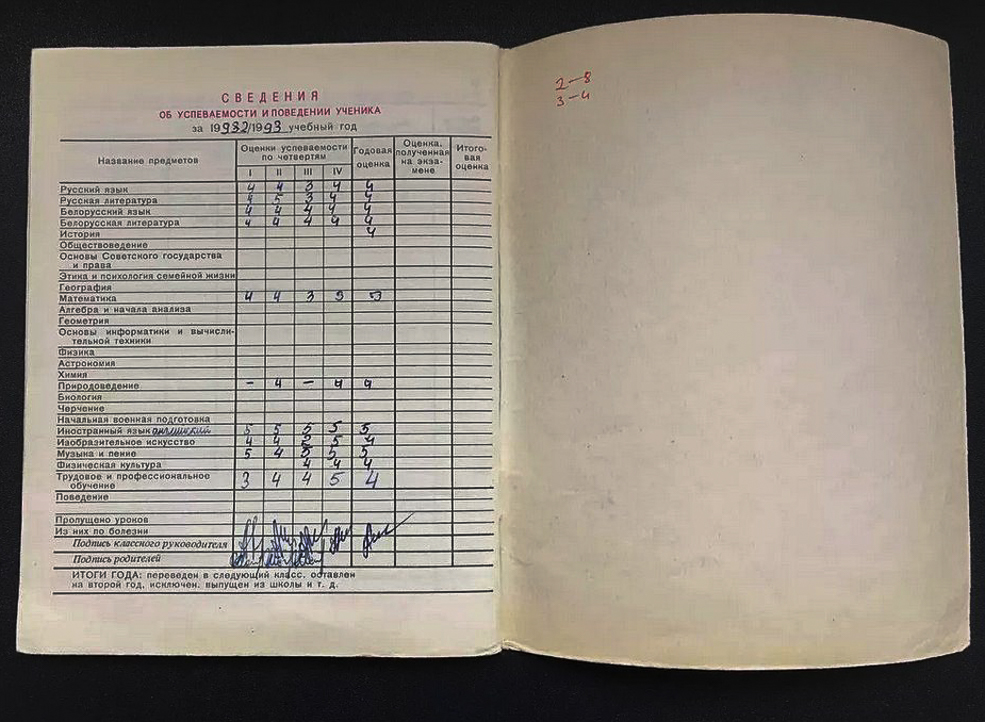 СВЕДЕНИЯ
ОБ УСПЕВАЕМОСТИ И ПОВЕДЕНИИ УЧЕНИКА
за 1992/1993 учебный год
Название предметов Оценки успеваемости по четвертям Годовая оценка Оценка, полученная на экзамене Итоговая оценка
I II III IV
Русский язык 4 4 3 4 4
Русская литература 4 5 3 4 4
Белорусский язык 4 4 4 4 4
Белорусская литература 4 4 4 4 4
История 4
Обществоведение
Основы Советского государства
и права
Этика и психология семейной жизни
География
Математика 4 4 3 3 3
Алгебра и начала анализа
Геометрия
Основы информатики и вычисли-
тельной техники
Физика
Астрономия
Химия
Природоведение – 4 – 4 4
Биология
Черчение
Начальная военная подготовка
Иностранный язык английский 5 5 5 5 5
Изобразительное искусство 4 4 5 5 4
Музыка и пение 5 4 5 5 5
Физическая культура 4 4 4
Трудовое и профессиональное
обучение 3 4 4 5 4
Поведение
Пропущено уроков
Из них по болезни
Подпись классного руководителя
Подпись родителей
ИТОГИ ГОДА: переведен в следующий класс, оставлен
на второй год, исключен, выпущен из школы и т. д.
2–8
3–4